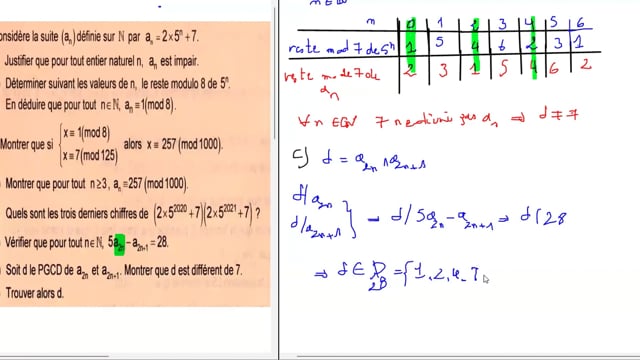 onsidère la suite (aₙ) définie sur ℕ par aₙ = 2×5ⁿ + 7.
Justifier que pour tout entier naturel n, aₙ est impair.
Déterminer suivant les valeurs de n, le reste modulo 8 de 5ⁿ.
En déduire que pour tout n∈ℕ, aₙ ≡ 1(mod 8).
Montrer que si { x ≡ 1(mod 8) x ≡ 7(mod 125) alors x ≡ 257(mod 1000).
Montrer que pour tout n≥3, aₙ ≡ 257(mod 1000).
Quels sont les trois derniers chiffres de (2×5²⁰²⁰ + 7)(2×5²⁰²¹ + 7) ?
Vérifier que pour tout n∈ℕ, 5a₂ₙ − a₂ₙ₊₁ = 28.
Soit d le PGCD de a₂ₙ et a₂ₙ₊₁. Montrer que d est différent de 7.
Trouver alors d.
n 0 1 2 3 4 5 6
reste mod 7 de 5ⁿ 1 5 4 6 2 3 1
reste mode 7 de aₙ 2 3 1 5 4 6 2
∀ n ∈ ℕ 7 ne divise pas aₙ ⇒ d ≠ 7
c) d = a₂ₙ ∧ a₂ₙ₊₁
d/a₂ₙ
d/a₂ₙ₊₁ } ⇒ d/5a₂ₙ − a₂ₙ₊₁ ⇒ d/28
⇒ d ∈ D₂₈ = {1, 2, 4, 7